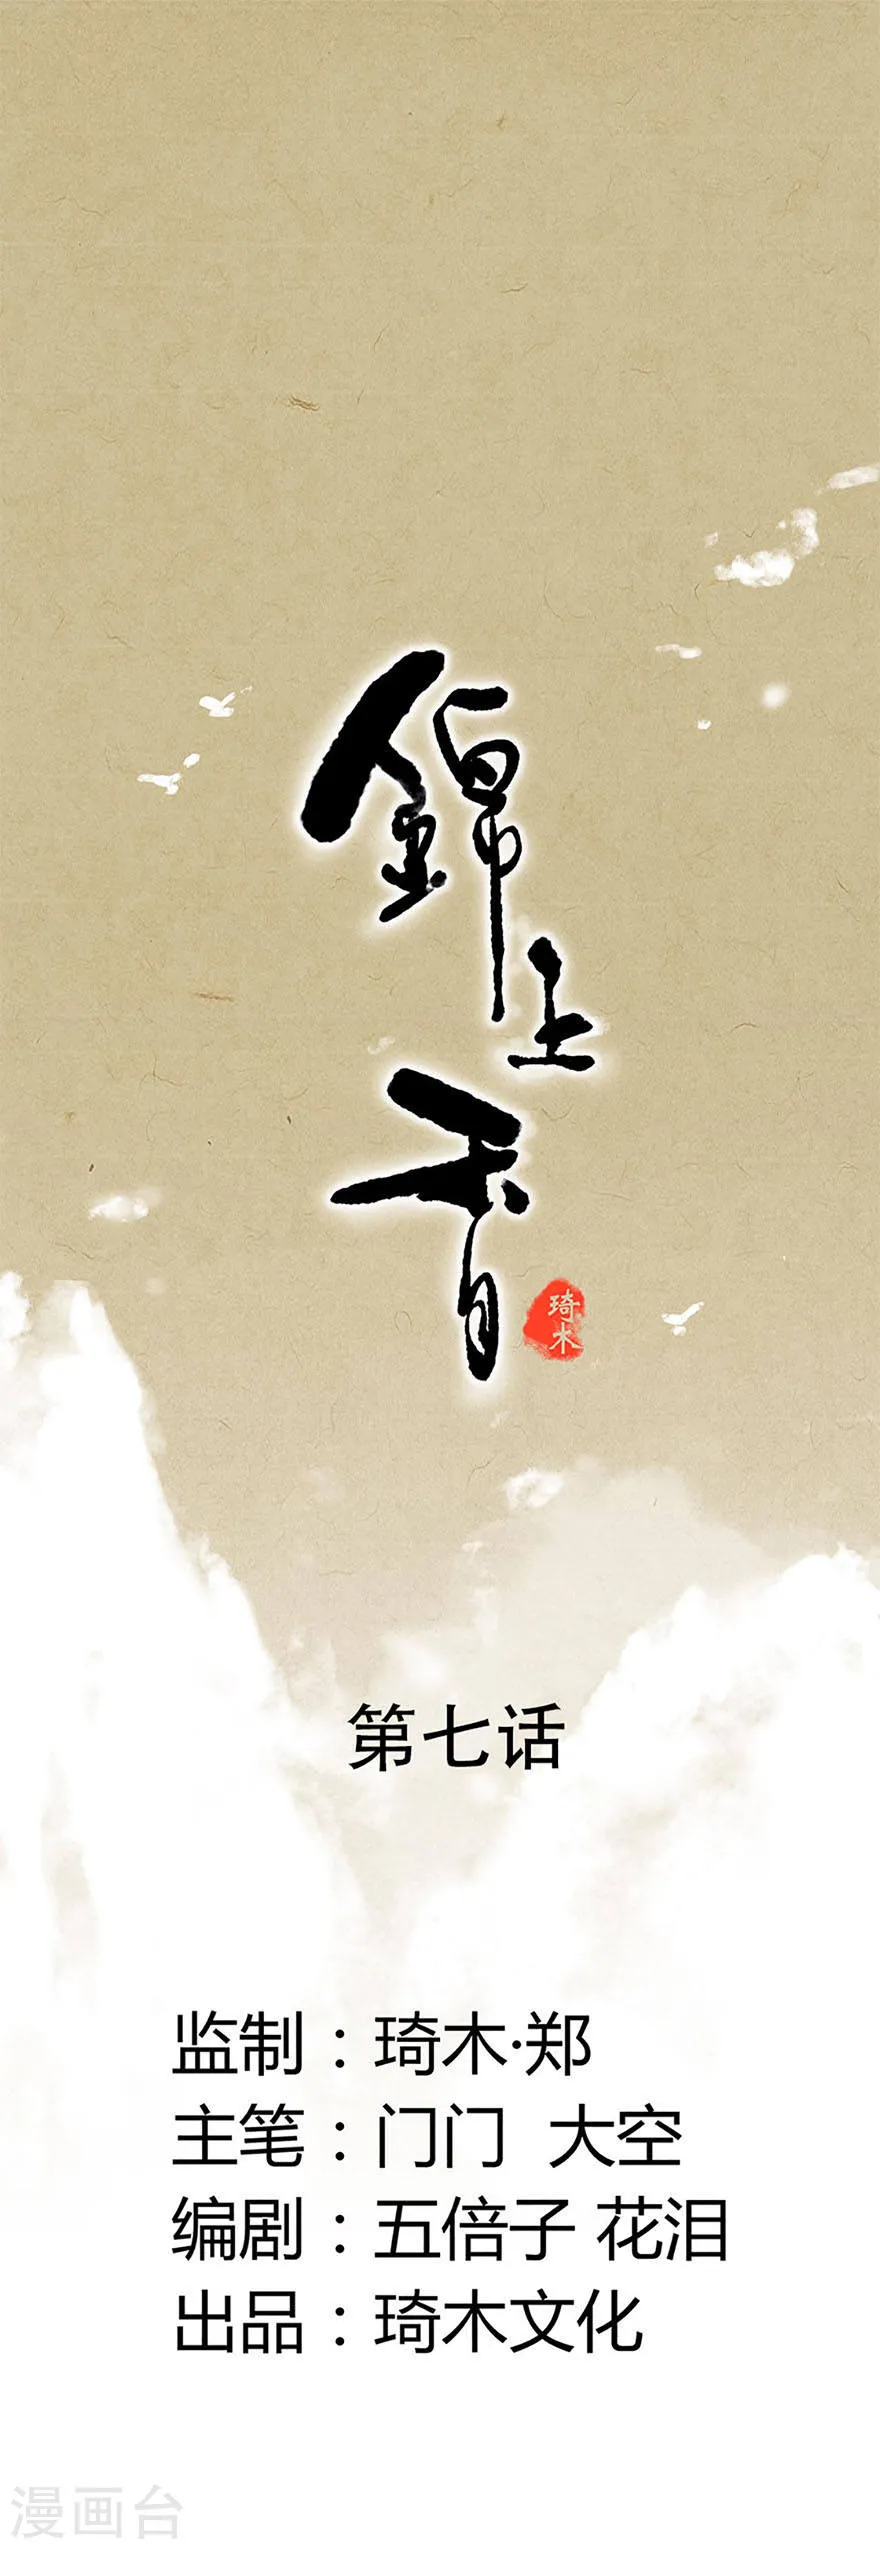 錦上香
琦木
第七话
监制：琦木·郑
主笔：门门 大空
编剧：五倍子 花泪
出品：琦木文化
漫画台